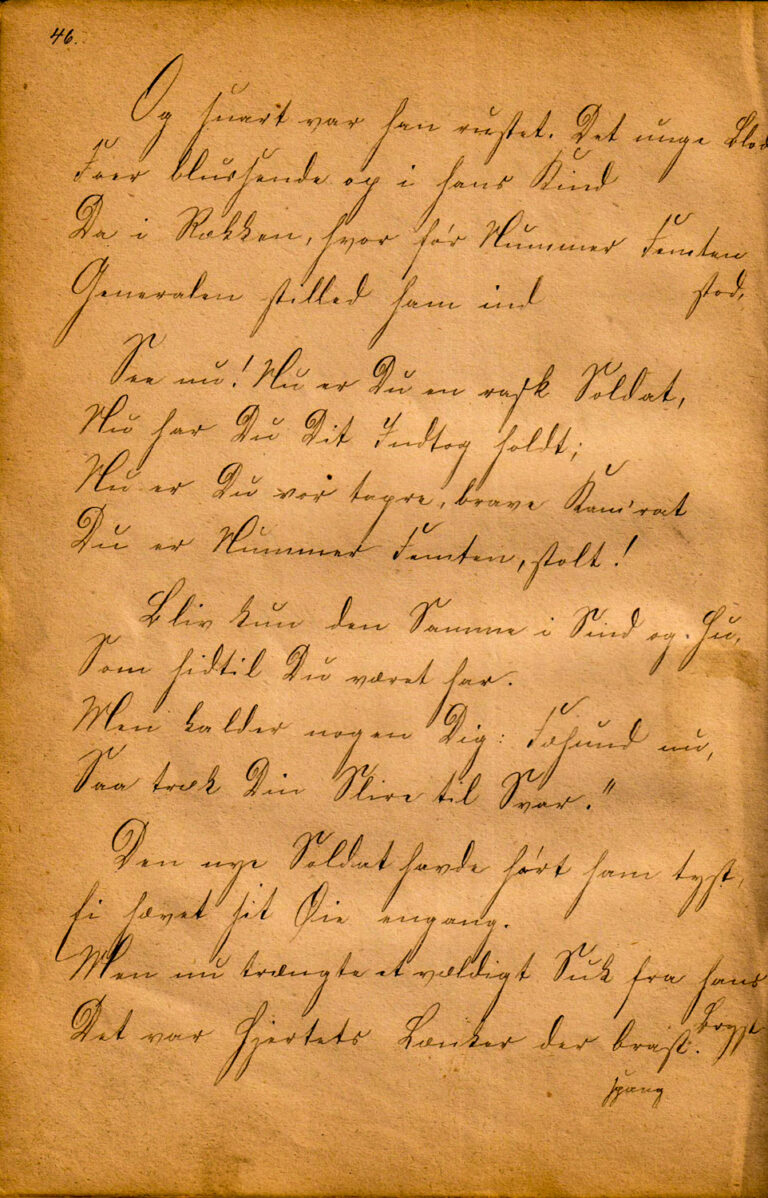 46.
Og snart var han rustet. Det unge Blod
Foer blussende op i hans Kind
Da i Rækken, hvor før Nummer Femten
stod,
Generalen stilled ham ind
See nu! Nu er Du en rask Soldat,
Nu har Du Dit Indtog holdt;
Nu er Du vor tapre, brave Kam'rat
Du er Nummer Femten, stolt!
Bliv kun den Samme i Sind og Hu,
Som hidtil Du været har.
Men kalder nogen Dig: Fæhund nu,
Saa træk Din Slire til Svar."
Den nye Soldat havde hørt ham tyst,
Ei hævet sit Øie engang.
Men nu trængte et vældigt Suk fra hans
Bryst
Det var Hjertets Lænker der brast.
sprang